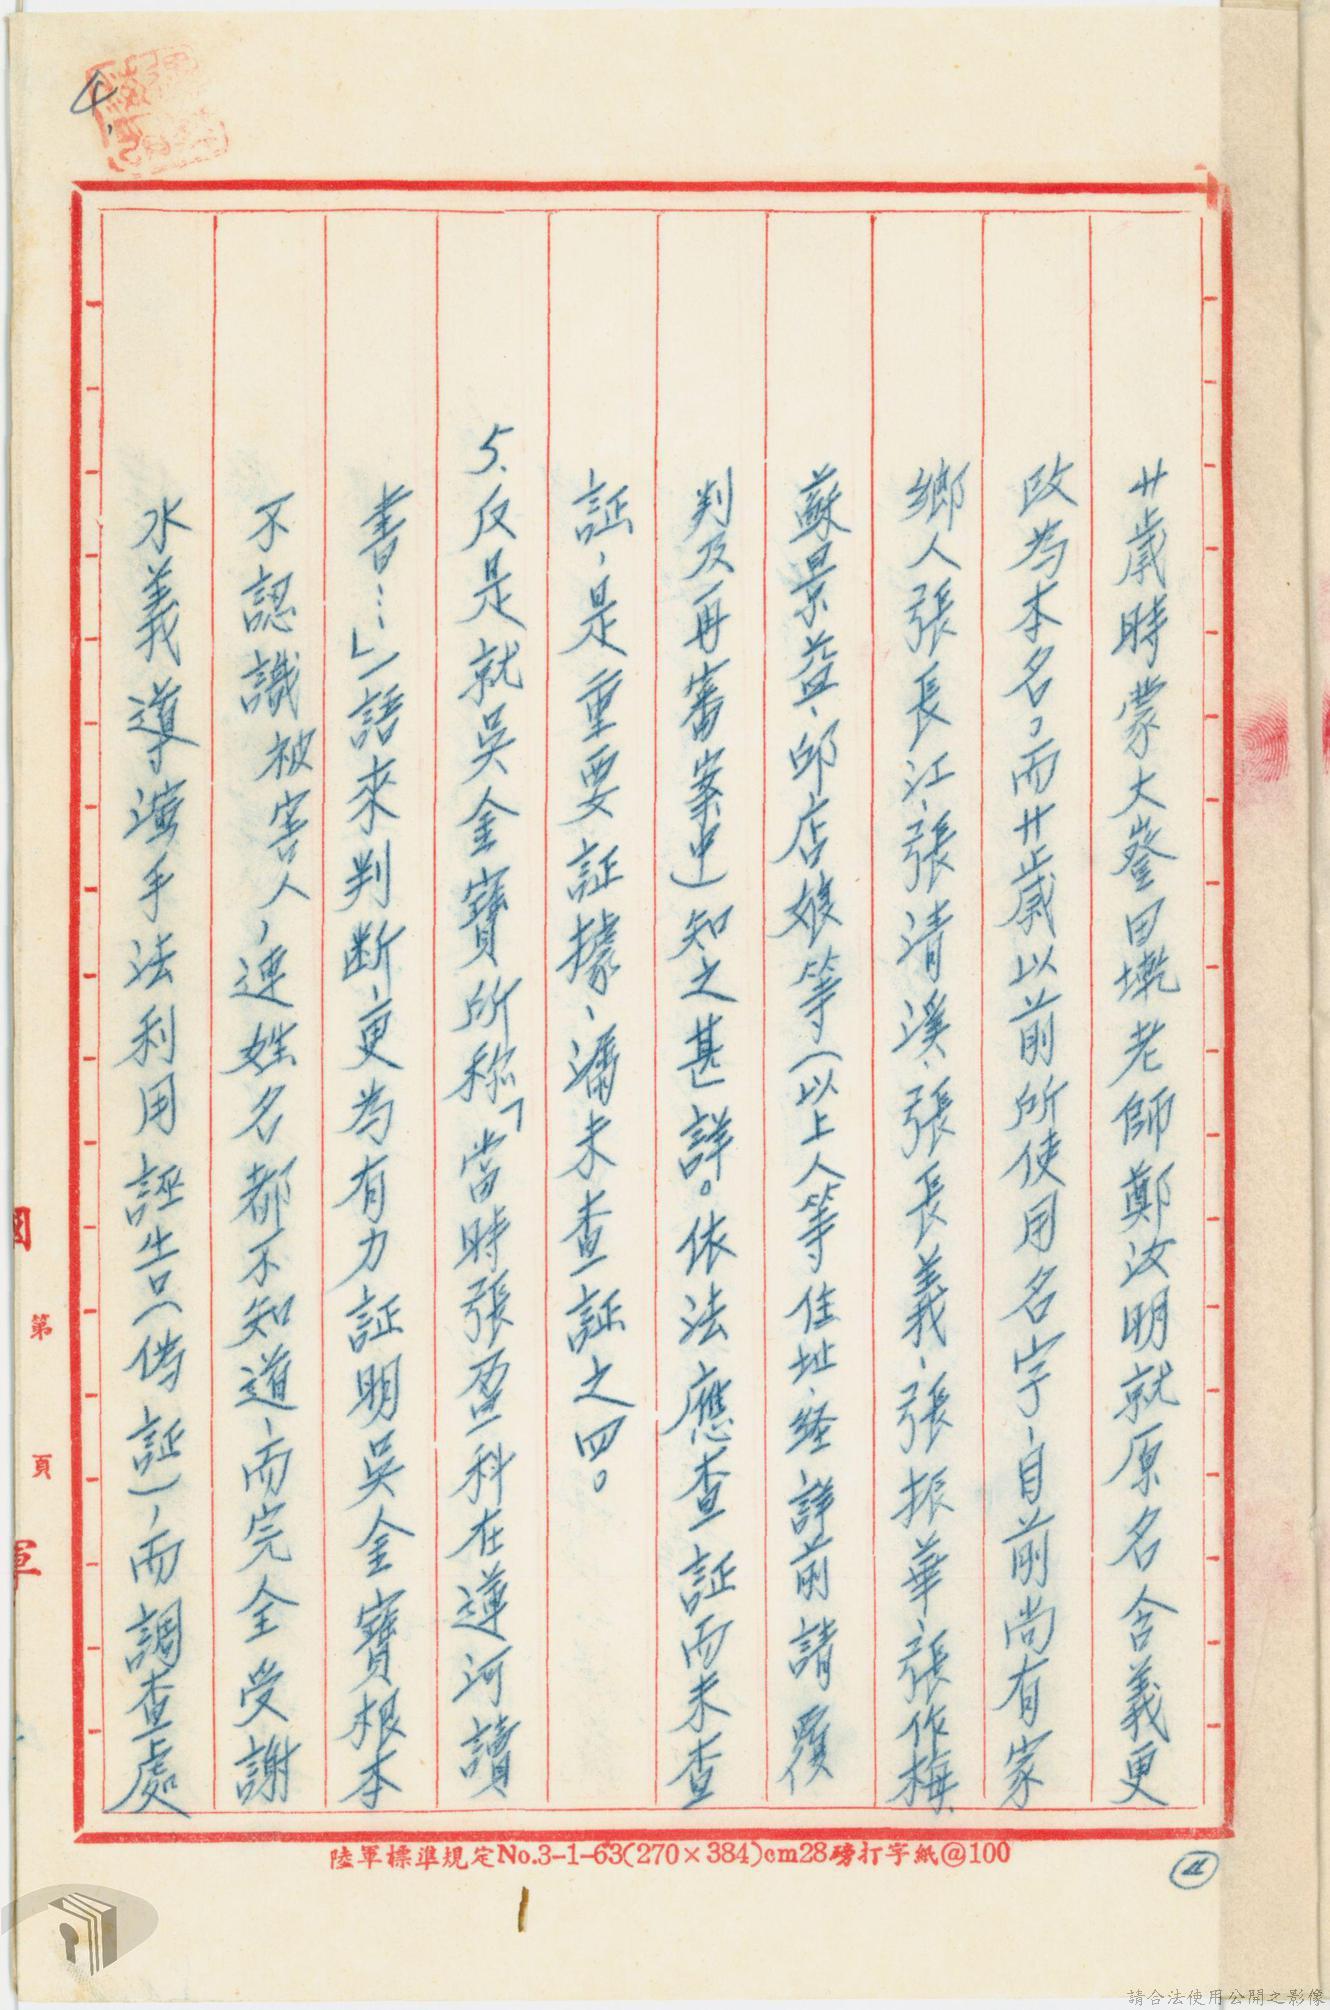 4.
廿歲時蒙大嶝田墘老師鄭汝明就原名含義更
改為本名，而廿歲以前所使用名字、自前尚有家
鄉人張長江、張清溪、張長義、張振華、張作梅
蘇景益、邱店娘等（以上人等住址、經詳前諸覆
判及再審案中）知之甚詳。依法應查証而未查
証，是重要証據、漏未查証之四。
5.反是就吳金寶所称「當時張盈科在蓮河讀
書…」一語來判断，更為有力証明吳金寶根本
不認識被害人，連姓名都不知道、而完全受謝
水義導演手法利用誣告（偽証），而調查處
國
第
頁
軍
陸軍標準規定No.3-1-63(270×384)cm28磅打字紙@100
請合法使用公開之影像